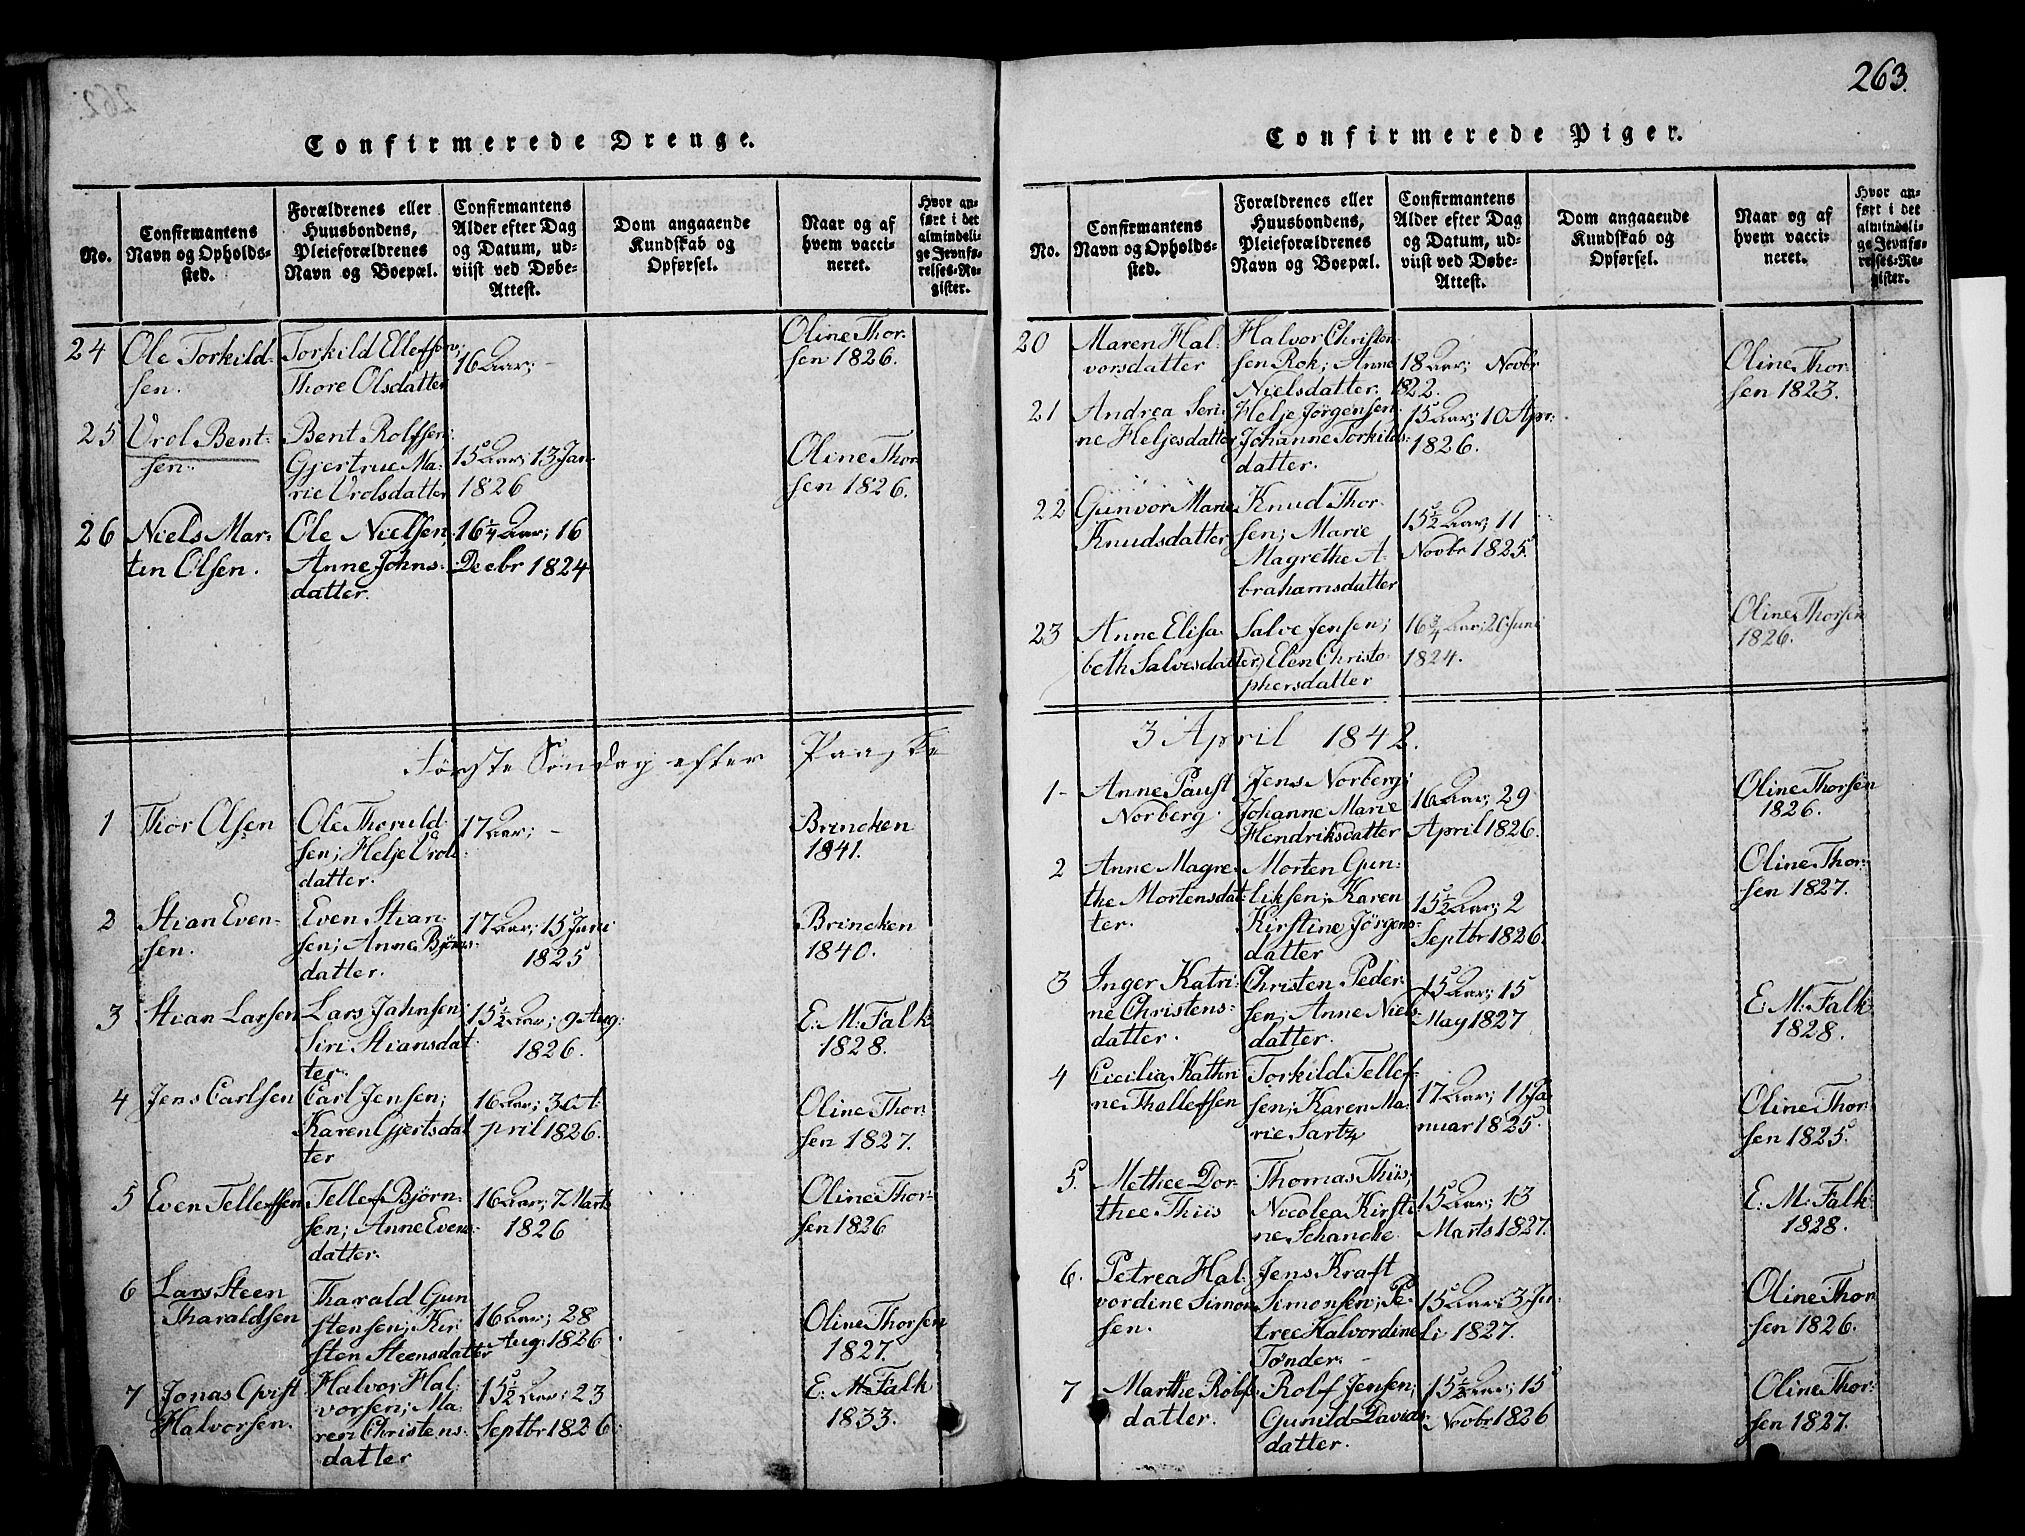 263.
Confirmerede Drenge.
No.
Confirmantens
Navn og Opholds-
sted.
Forældrenes eller
Huusbondens,
Pleieforældrenes
Navn og Boepæl.
Confirmantens
Alder efter Dag
og Datum, ud-
viist ved Døbe-
Attest.
Dom angaaende
Kundskab og
Opførsel.
Naar og af
hvem vacci-
neret.
Hvor an-
ført i det
almindeli-
ge Jevnfø-
relses-Re-
gister.
24
Ole Torkild-
sen.
Torkild Ellefsen;
Thore Olsdatter
16 Aar; -
Oline Thor-
sen 1826.
25
Vrol Bent-
sen.
Bent Rolfsen;
Gjertrue Ma-
rie Vrolsdatter
15 Aar; 13 Jan
1826
Oline Thor-
sen 1826.
26
Niels Mar-
tin Olsen.
Ole Nielsen,
Anne Johns-
datter.
16 1/4 Aar; 16
Decbr 1824
Første Søndag efter Paaske
1
Thor Olsen
Ole Thoruld-
sen; Helje Vrols-
datter.
17 Aar; -
Brincken
1841.
2
Stian Even-
sen.
Even Stian-
sen; Anne Bjørns-
datter.
17 Aar; 15 Juni
1825
Brincken
1840.
3
Stian Larsen
Lars Jahnsen;
Siri Stiansdat-
ter.
15 1/2 Aar; 9 Aug:
1826.
E: M: Falk
1828.
4
Jens Carlsen
Carl Jensen;
Karen Gjertsdat
ter
16 Aar; 30 A-
pril 1826.
Oline Thor-
sen 1827.
5
Even Tellefsen
Tellef Bjørn-
sen; Anne Evens-
datter.
16 Aar; 7 Marts
1826
Oline Thor-
sen 1826
6
Lars Steen
Tharaldsen
Tharald Gun
stensen; Kir-
sten Steensdatter
16 Aar; 28
Aug: 1826
Oline Thorsen
1827.
7
Jonas Qvist
Halvorsen.
Halvor Hal-
vorsen; Ma-
ren Christens-
datter
15 1/2 Aar; 23
Septbr 1826
E: M: Falk
1833.
Confirmerede Piger.
No.
Confirmantens
Navn og Opholds-
sted.
Forældrenes eller
Huusbondens,
Pleieforældrenes
Navn og Boepæl.
Confirmantens
Alder efter Dag
og Datum, ud-
viist ved Døbe-
Attest.
Dom angaaende
Kundskab og
Opførsel.
Naar og af
hvem vacci-
neret.
Hvor an-
ført i det
almindeli-
ge Jevnfø-
relses-Re-
gister.
20
Maren Hal-
vorsdatter
Halvor Christen-
sen Rok; Anne
Nielsdatter.
18 Aar; Novbr
1822.
Oline Thor-
sen 1823.
21
Andrea Seri-
ne Heljesdatter
Helje Jørgensen
Johanne Torkilds-
datter.
15 Aar; 10 Apr:
1826.
22
Gunvor Marie
Knudsdatter
Knud Thor-
sen; Marie
Magrethe A-
brahamsdatter
15 1/2 Aar; 11
Novbr 1825.
23
Anne Elisa-
beth Salvesdatter
Salve Jensen;
Elen Christo-
phersdatter
16 3/4 Aar; 20 Juni
1824.
Oline Thorsen
1826.
3 April 1842.
1
Anne Paust
Norberg.
Jens Norberg;
Johanne Marie
Hendriksdatter
16 Aar; 29
April 1826.
Oline Thorsen
1826.
2
Anne Magre-
the Mortensdat-
ter.
Morten Gun-
liksen; Karen
Kirstine Jørgens-
datter
15 1/2 Aar; 2
Septbr 1826.
Oline Thor-
sen 1827.
3
Inger Katri-
ne Christens-
datter.
Christen Peder-
sen; Anne Niels-
datter.
15 Aar; 15
May 1827
E: M: Falk
1828.
4
Cecilia Kathri
ne Thellefsen
Torkild Tellef-
sen; Karen Ma-
rie Sartz
17 Aar; 11 Ja-
nuar 1825.
Oline Thor-
sen 1825.
5.
Methee Dor-
thee Thiis
Thomas Thiis;
Nicolea Kirsti-
ne Schancke
15 Aar; 13
Marts 1827.
E: M: Falk
1828.
6.
Petrea Hal-
vordine Simon-
sen.
Jens Kraft
Simonsen; Pe-
tree Halvordine
Tønder. -
15 Aar; 3 Ju-
li 1827.
Oline Thor-
sen 1826.
7
Marthe Rolfs-
datter.
Rolf Jensen;
Gunild Davids-
datter.
15 1/2 Aar; 15
Novbr 1826
Oline Thor-
sen 1827.